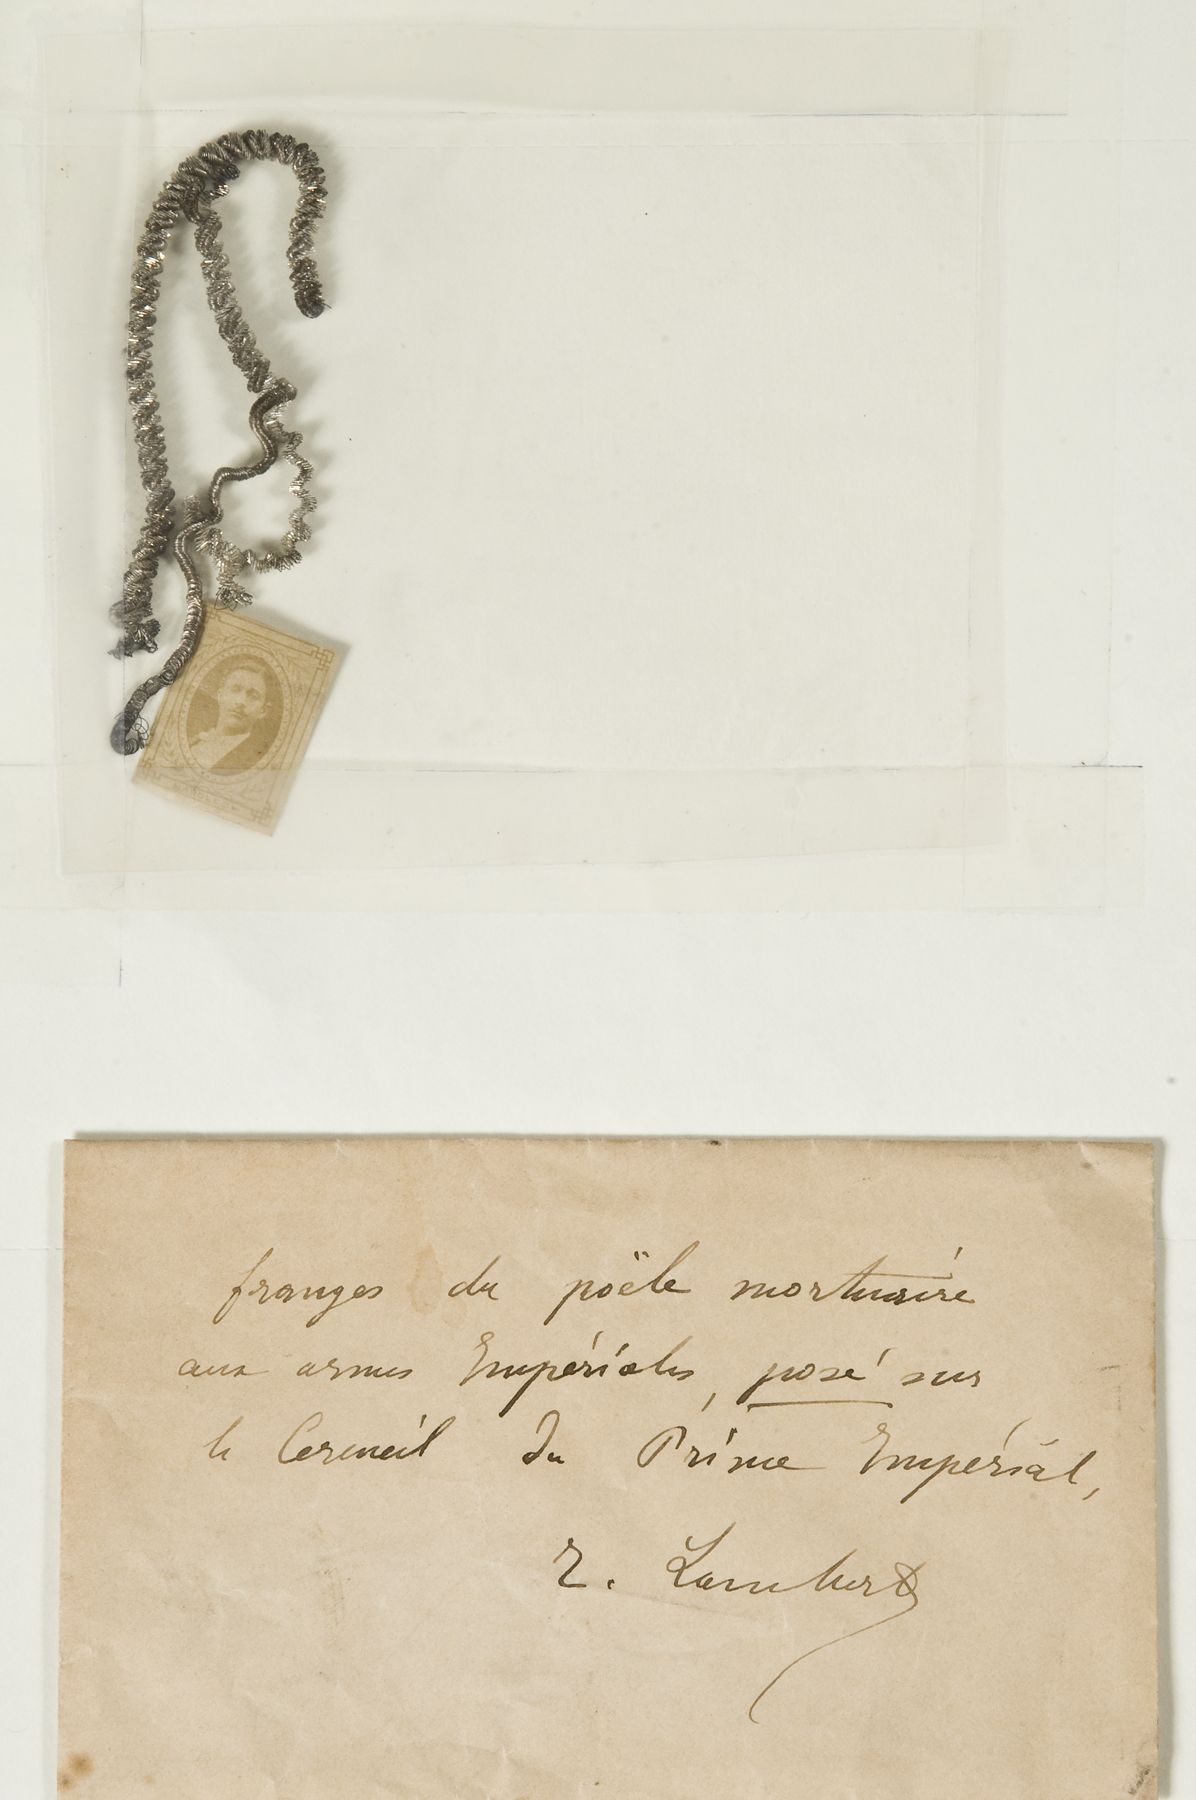 franges du poële mortuaire
aux armes Empériales, posé sur
le Cerceuil du Prince Empérial,
E. Lambert